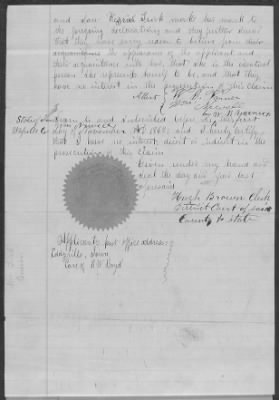 and saw make his mark to
the foregoing declaration and they further swear
that they have every reason to believe from their
acquaintance the appearance of the applicant and
their acquaintance with her, that she is the identical
person she represents herself to be, and that they
have no interest in the prosecution of this Claim
Attest
State of Sworn to and subscribed before me this first
day of November 188 and I hereby certify
that I have no interest, direct or indirect in the
prosecution of this Claim
Given under my hand and
seal the day and year last
foresaid
Hugh Brown Clerk
District Court of said
County & State
Applicants post office address
Iowa
Care of Boyd